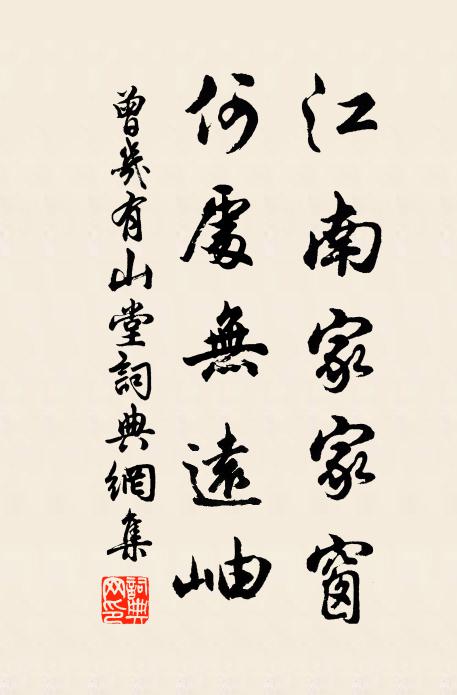 江南家家窗
何處無遠岫
曾幾有山堂詞典網集
詞典網印